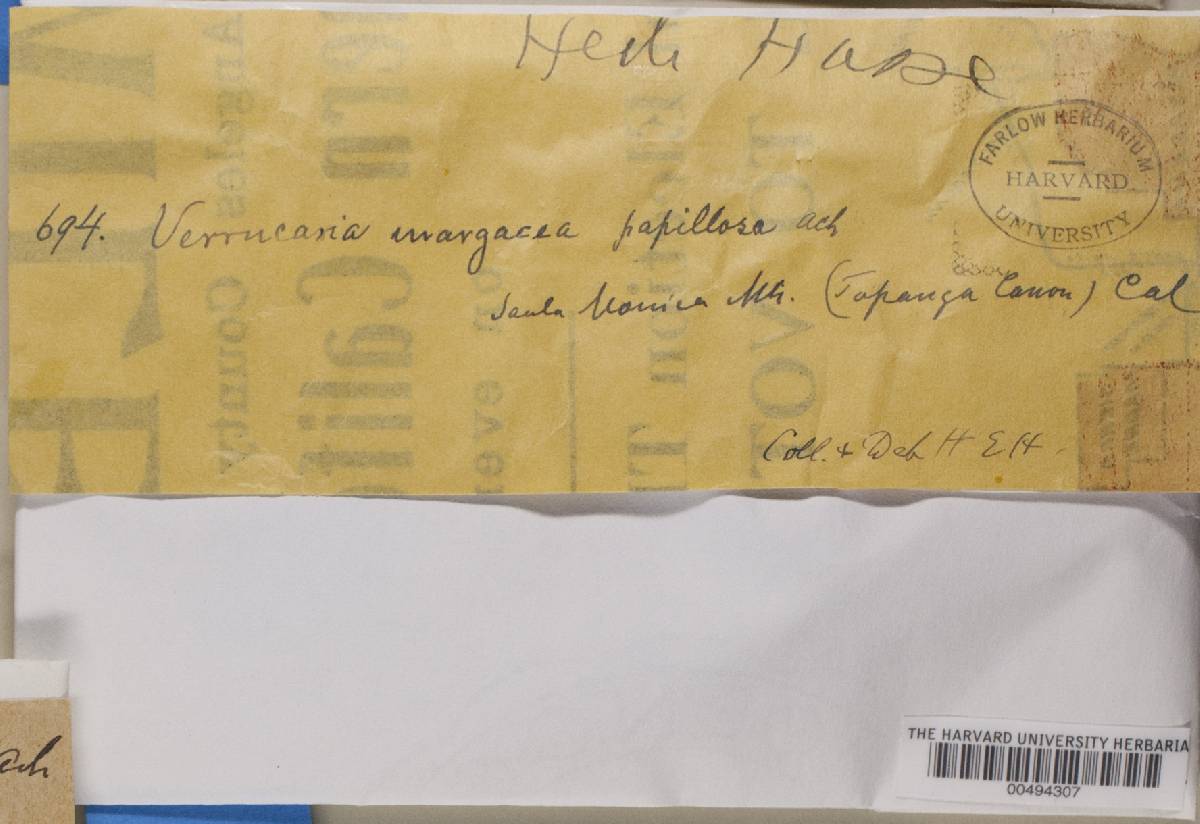 Herb Hasse
FARLOW HERBARIUM
HARVARD
UNIVERSITY
694. Verrucaria margacea papillosa ach
Santa Monica Mts. (Topanga Canon) Cal
Coll. + Det H E H
ach
THE HARVARD UNIVERSITY HERBARIA
00494307